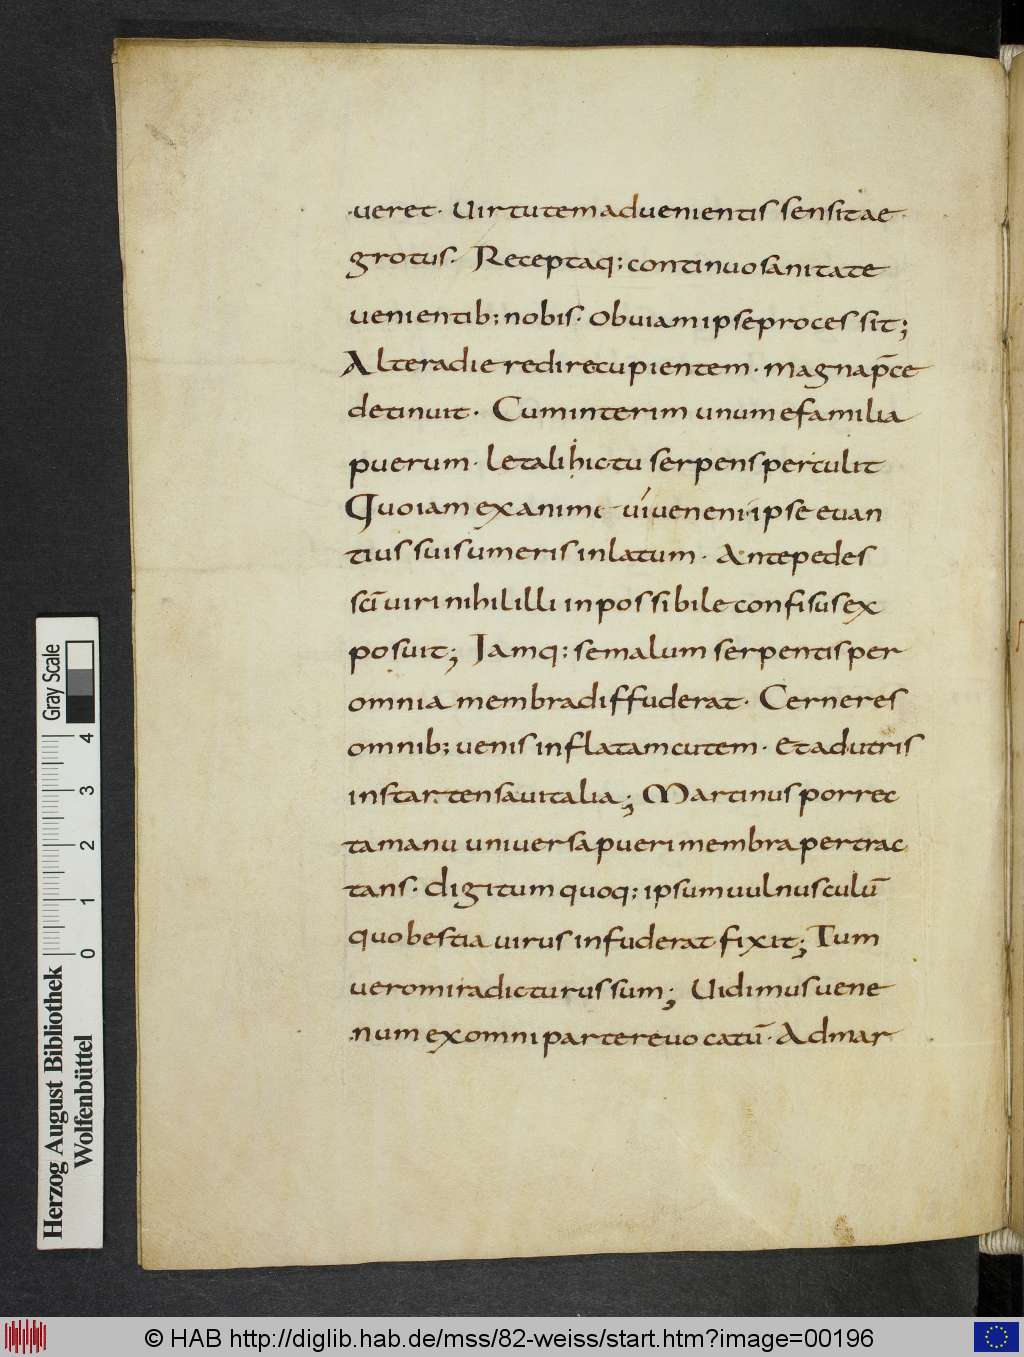 ueret· Uirtutem aduenientis sensit ae
grotus· Receptaq; continuo sanitate
uenientib; nobis· obuiam ipse processit;
Altera die redire cupientem· magna p̄ce
detinuit· Cum interim unum e familia
puerum· letali hictu serpens perculit
Quoiam exanime ui ueneni· ipse euan
tius suis umeris inlatum· Ante pedes
sc̄i uiri nihil illi inpossibile confisus ex
posuit; Jamq; se malum serpentis per
omnia membra diffuderat· Cerneres
omnib; uenis inflatam cutem· et ad utris
instar tensa uitalia; Martinus porrec
ta manu uniuersa pueri membra pertrac
tans· digitum quoq; ipsum uulnusculū
quo bestia uirus infuderat fixit; Tum
uero mira dicturus sum; Uidimus uene
num ex omni parte reuocatū· Ad mar
Herzog August Bibliothek
Wolfenbüttel
0 1 2 3 4
Gray Scale
© HAB http://diglib.hab.de/mss/82-weiss/start.htm?image=00196